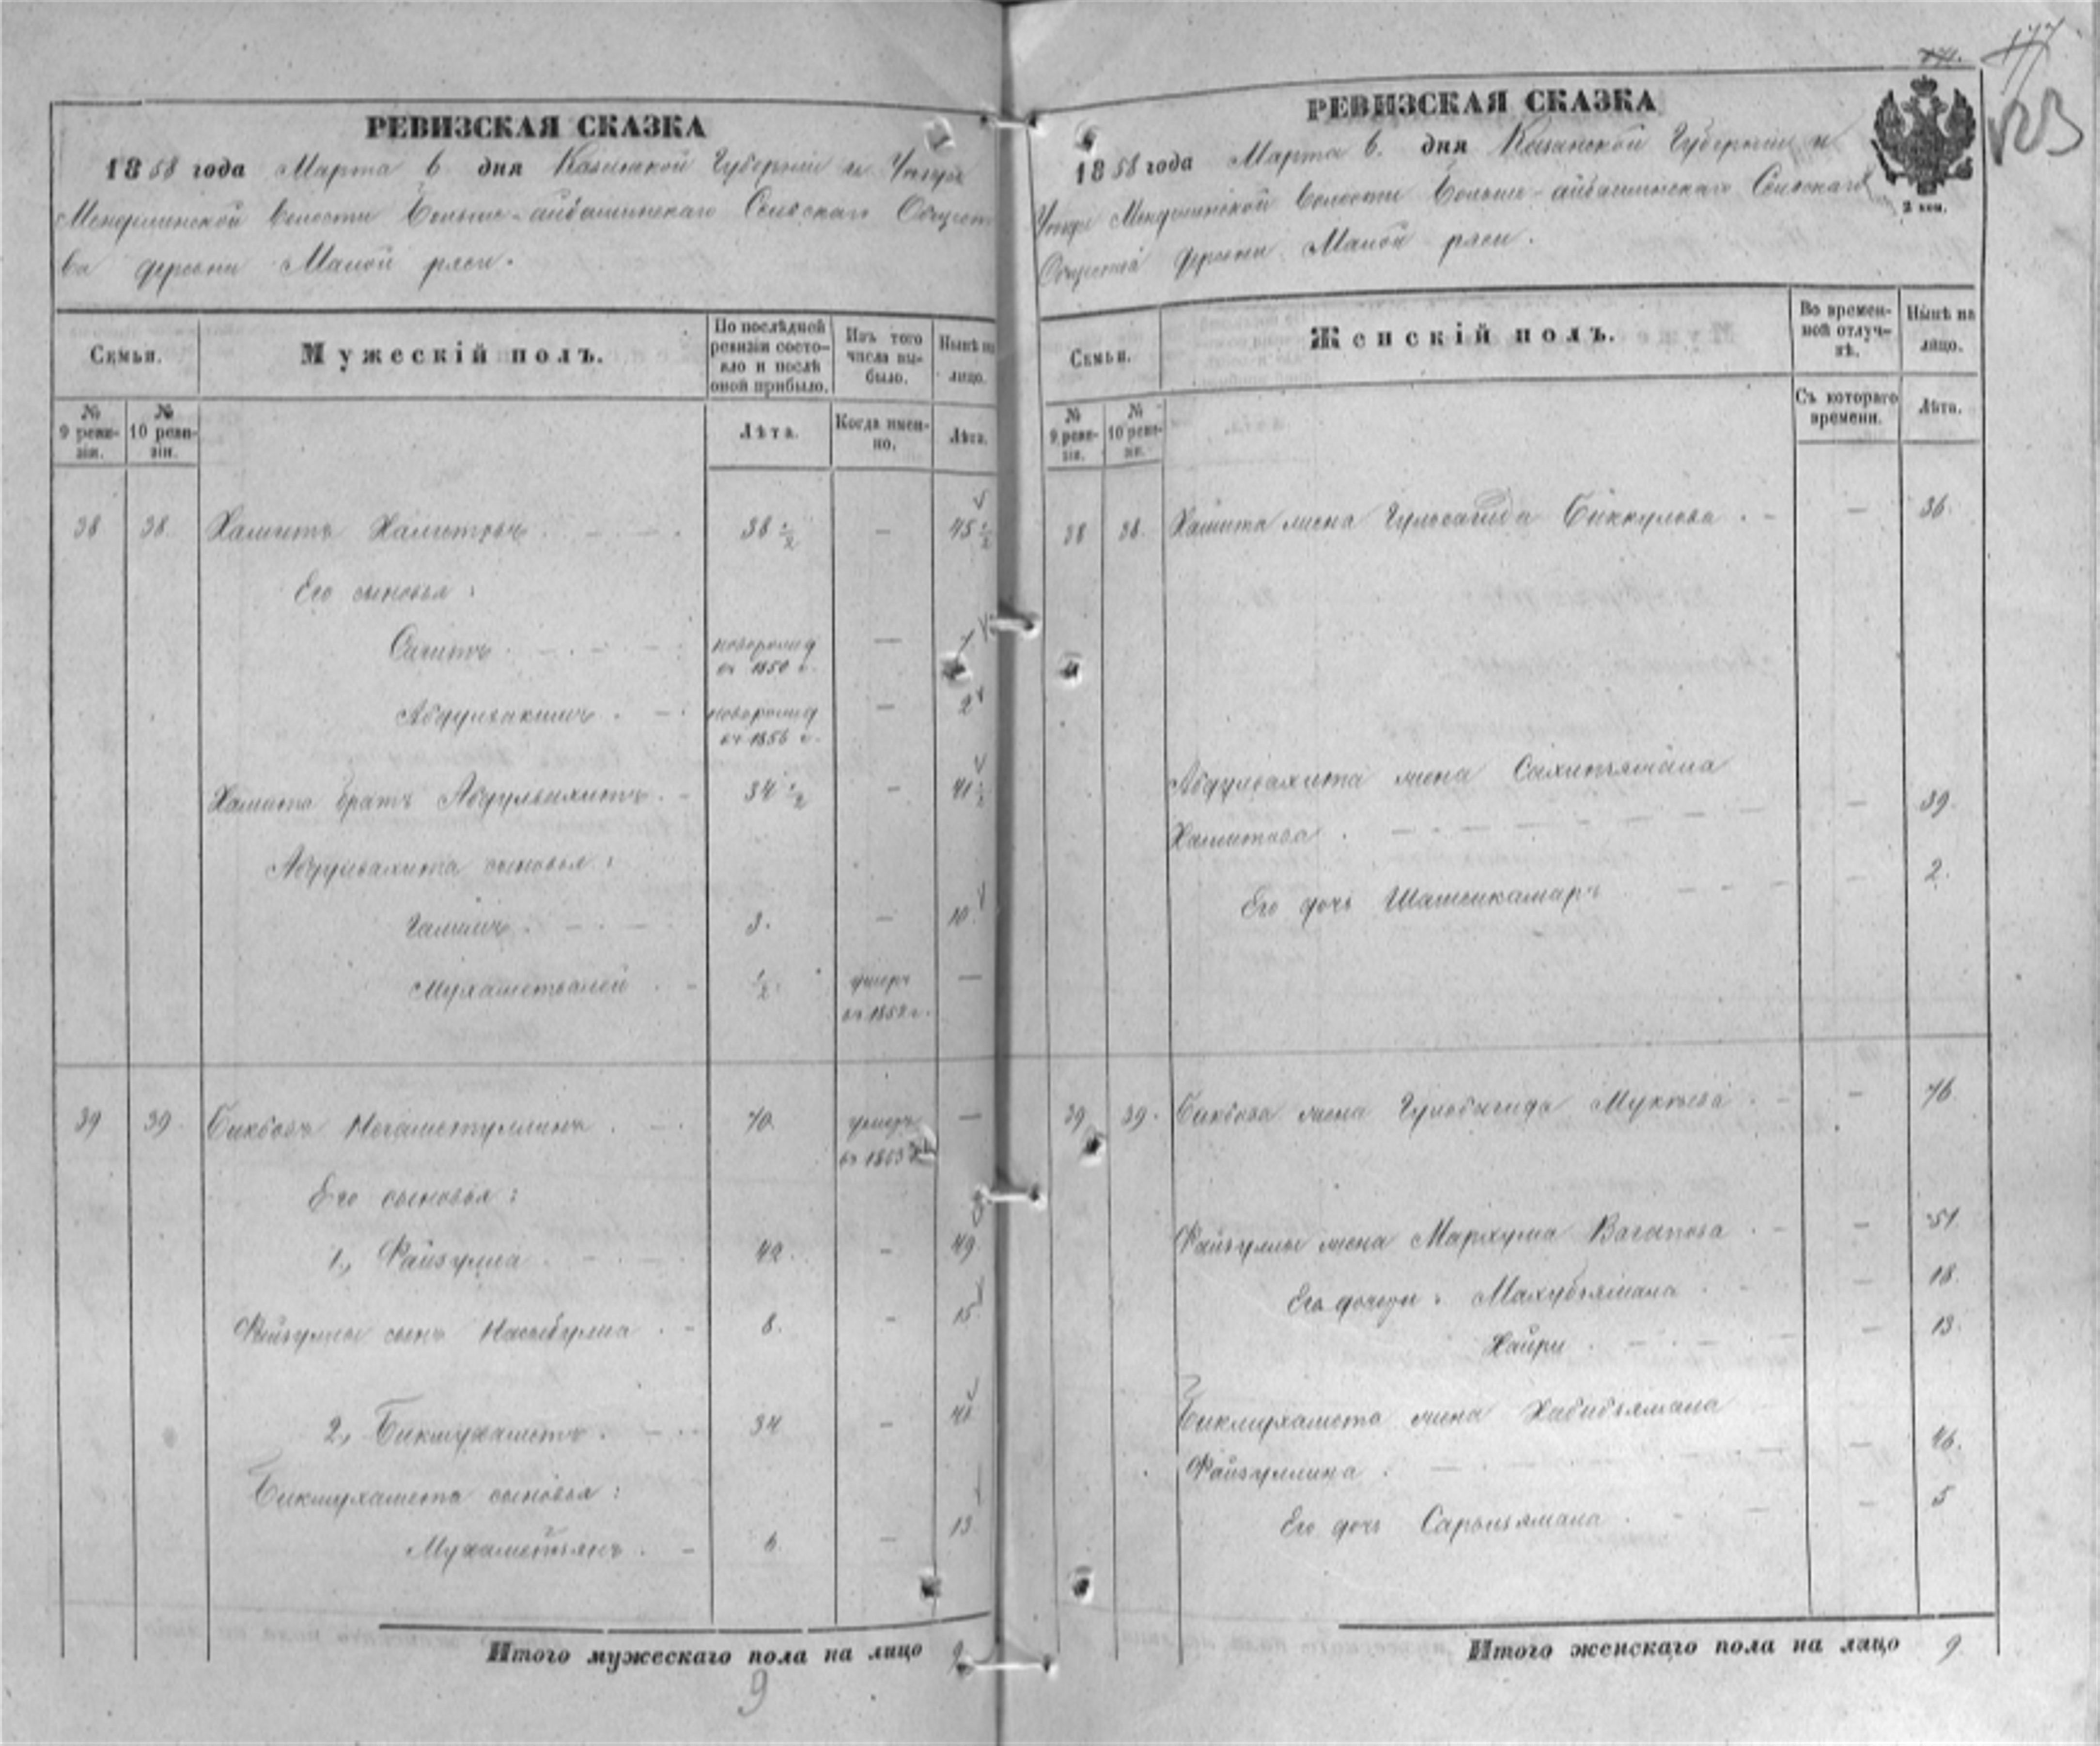 РЕВИЗСКАЯ СКАЗКА
1858 года Марта 6 дня Казанской Губерніи и Уезда
Мендюшской волости Больше-айбашинскаго Сельскаго Общест
ва деревни Малой ряси.
Семьи.
Мужескій полъ.
По послѣдной ревизіи состояло и послѣ оной прибыло.
Изъ того числа выбыло.
Нынѣ на лицо.
№ 9 ревизіи.
№ 10 ревизіи.
Лѣта.
Когда именно.
Лѣта.
38 38 Хамитъ Хамитовъ 38 1/2 — 45 1/2
Его сыновья:
Сагитъ новорожд въ 1850 г. — 7
Абдулхакимъ новорожд въ 1856 г. — 2
Хамита братъ Абдулвахитъ 34 1/2 — 41 1/2
Абдулвахита сыновья:
Галимъ 3. — 10.
Мухаметвалей 1/2 умеръ въ 1852 г. —
39 39 Бикбовъ Негаметуллинъ 70 умеръ въ 1853 —
Его сыновья:
1, Файзулла 42. — 49.
Файзуллы сынъ Насыбулла 8. — 15.
2, Бикмухаметъ 34 — 41
Бикмухамета сыновья:
Мухаметьянъ 6. — 13
Итого мужескаго пола на лицо 9
9
177
РЕВИЗСКАЯ СКАЗКА
2 коп.
1858 года Марта 6. дня Казанской Губерніи и
Уезда Мендюшской волости Больше-айбашинскаго Сельскаго
Общества деревни Малой ряси.
Семьи.
Женскій полъ.
Во временной отлучкѣ.
Нынѣ на лицо.
№ 9 ревизіи.
№ 10 ревизіи.
Съ котораго времени.
Лѣта.
38 38. Хамита жена Гульсагида Биккулова — 36.
Абдулвахита жена Сахипьямала
Хамитова — 39.
Его дочь Шамсикамаръ — 2.
39 39. Бикбова жена Гульбагида Муктева — 76
Файзуллы жена Мархума Вагапова — 51
Его дочери: Махубьямала — 18.
Хайри — 13.
Бикмухамета жена Хабибьямала
Файзуллина — 46.
Его дочь Сарвиямала — 5
Итого женскаго пола на лицо 9.